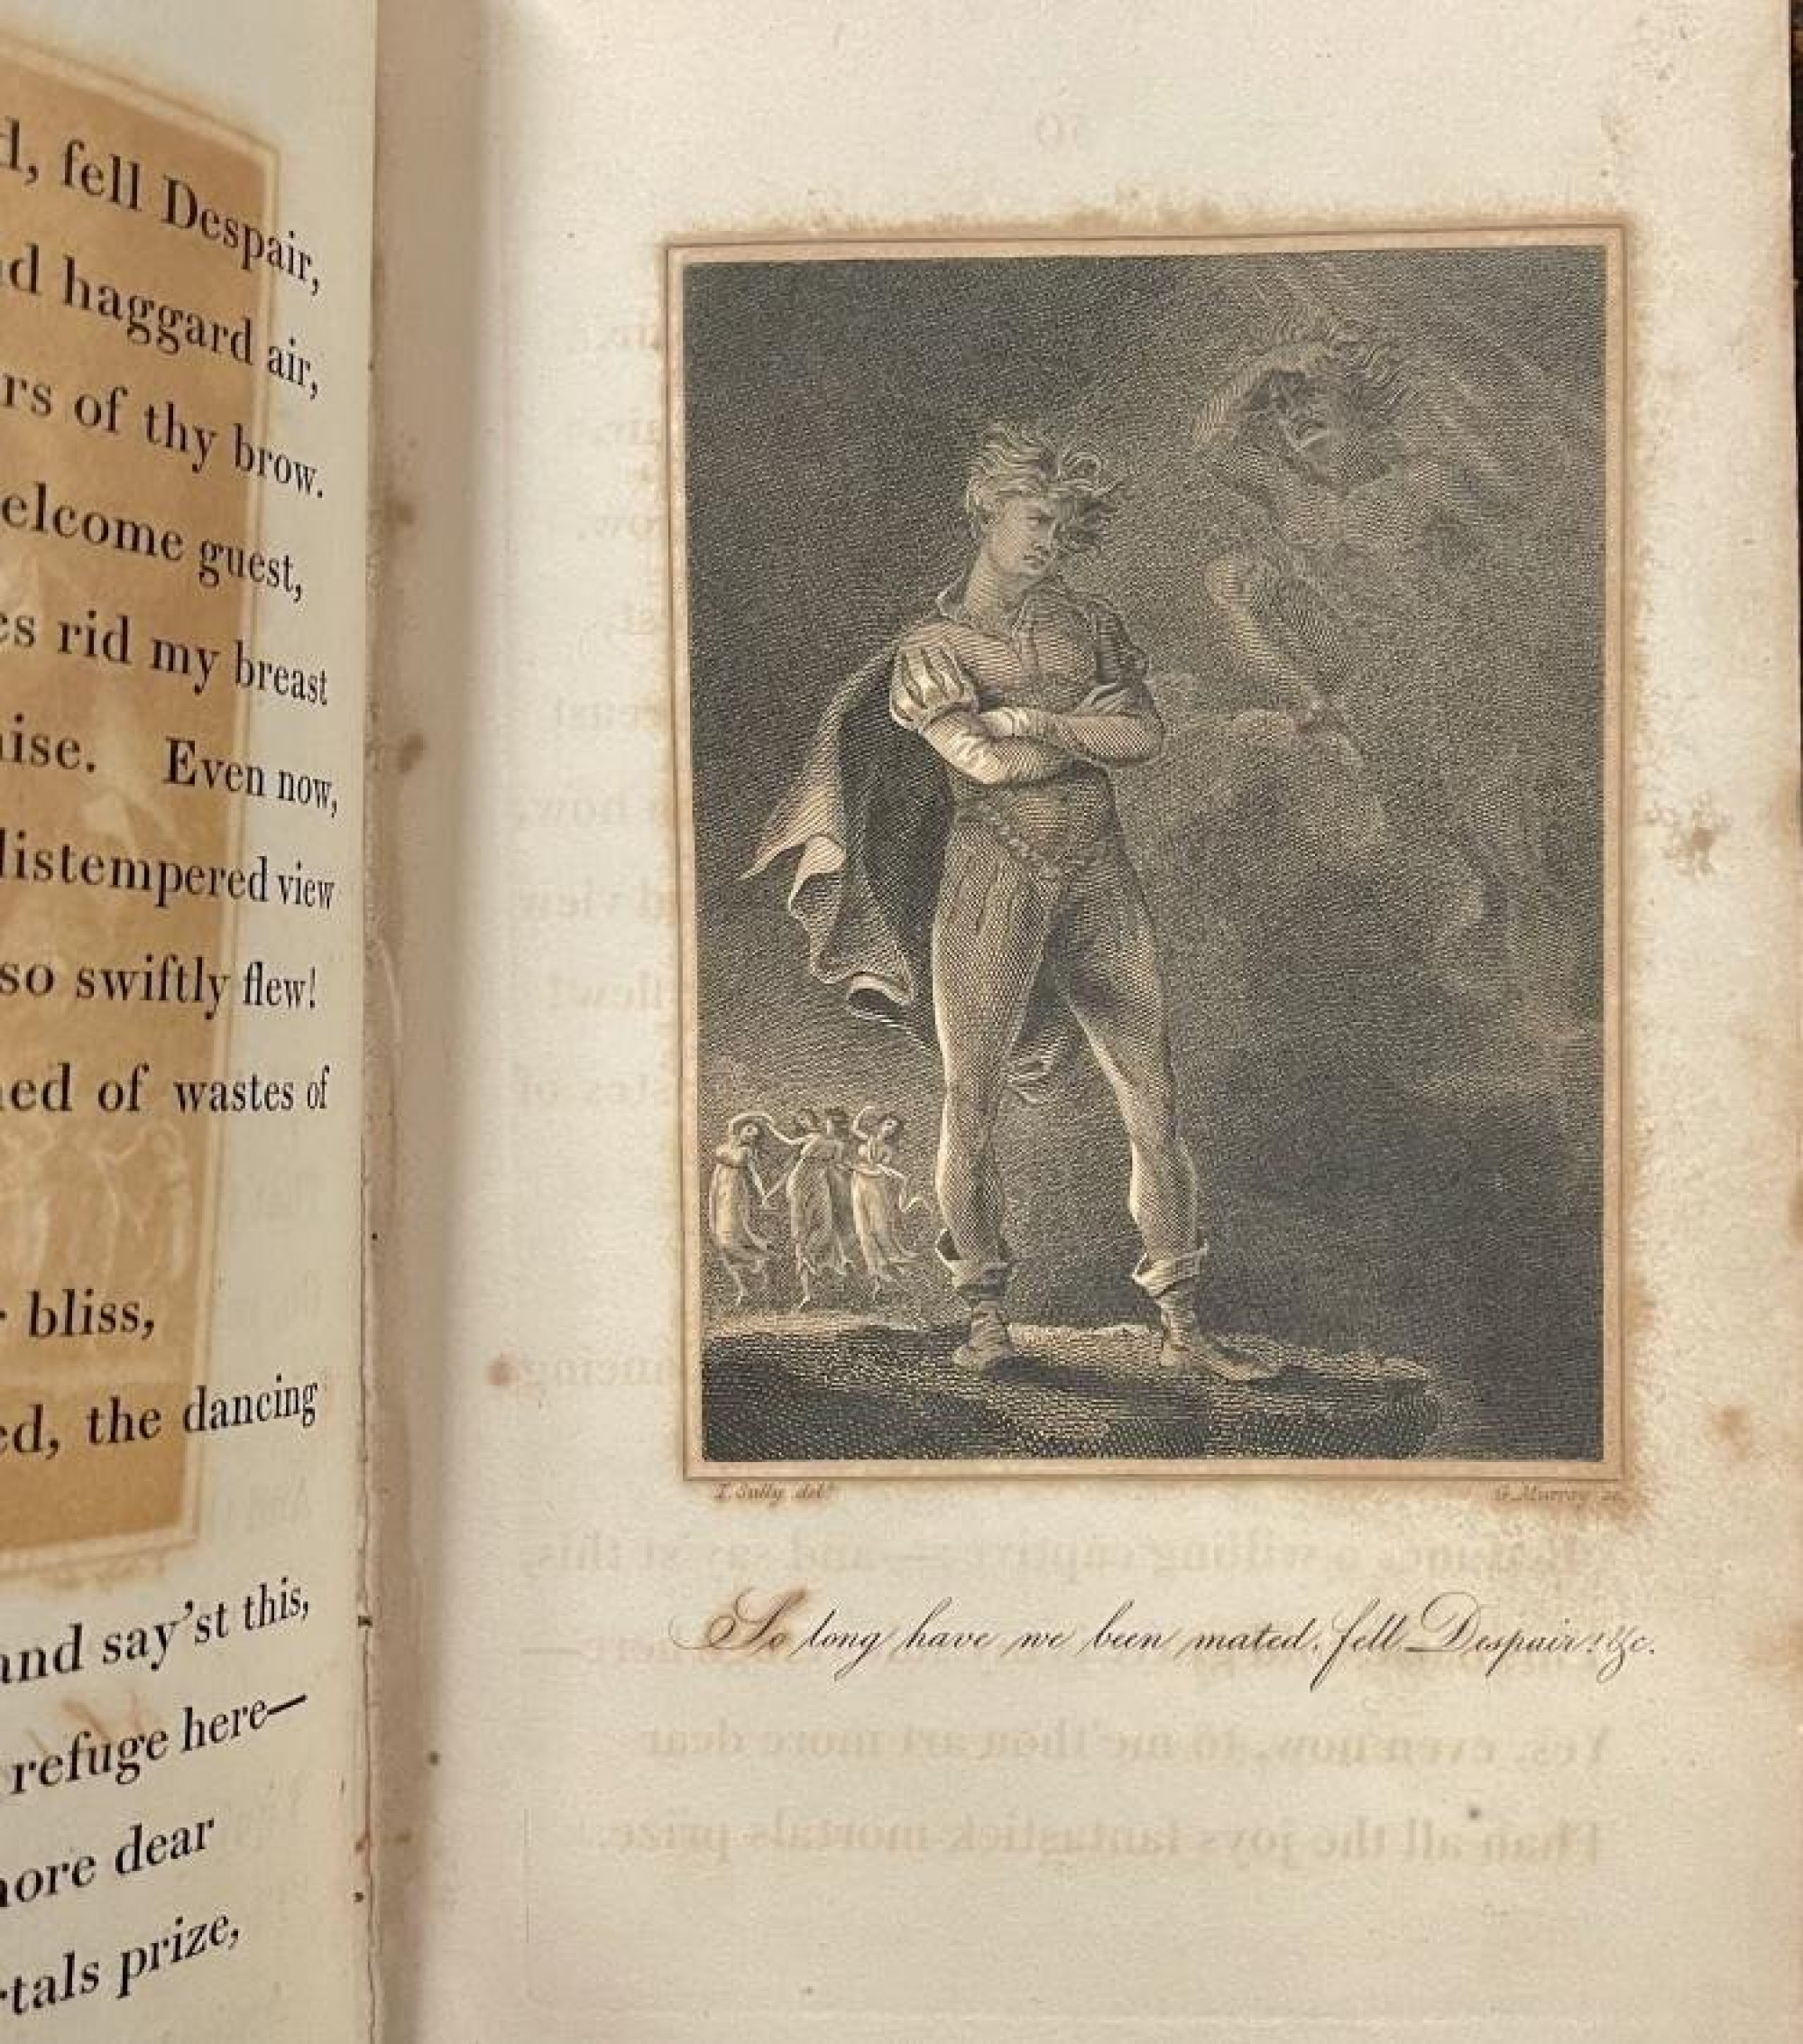 fell Despair,
haggard air,
of thy brow.
guest,
rid my breast
Even now,
distempered view
so swiftly flew!
of wastes of
bliss,
the dancing
and say'st this,
refuge here—
dear
prize,
T. Sully del.
G. Murray sc.
So long have we been mated, fell Despair! &c.